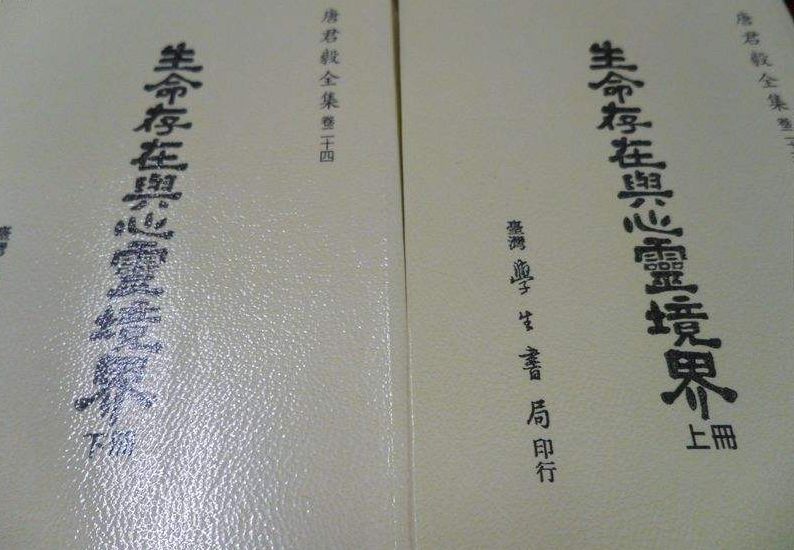 唐君毅全集 卷二十
生命存在與心靈境界
上冊
臺灣 學生書局印行
唐君毅全集 卷二十四
生命存在與心靈境界
下冊
臺灣